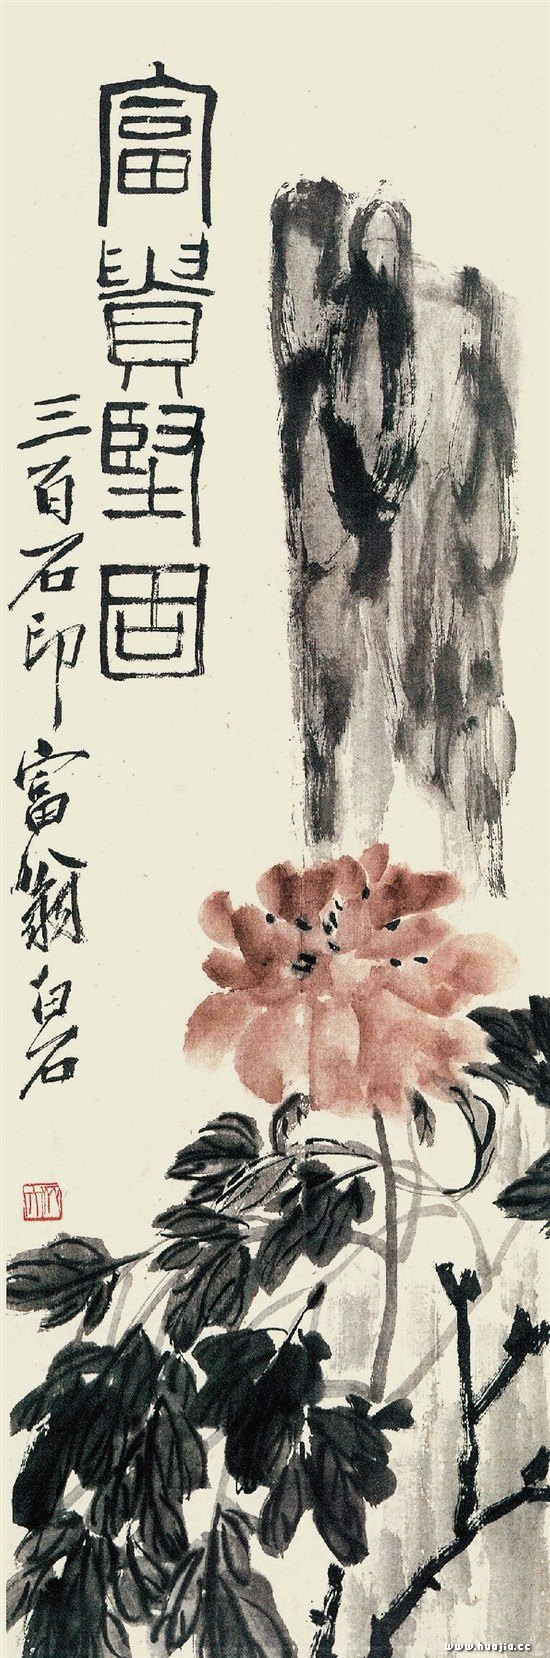 富貴堅固
三百石印富翁白石
www.huajia.cc